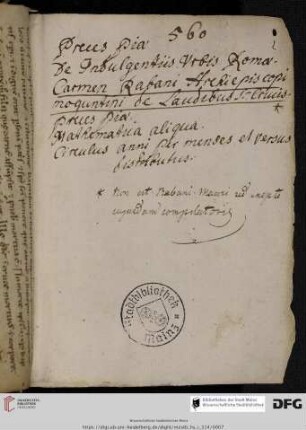 Preces Piæ 560
De Indulgentiis Urbis Romæ
Carmen Rabani Archiepiscopi
moguntini de Laudibus S. Crucis +
Preces Piæ.
Mathematica aliqua.
Circulus anni per menses et versus
distributus.
* Non est Rabani Mauri sed inepti
cujusdam compilatoris
Stadtbibliothek
Mainz
Bibliotheken der Stadt Mainz
Wissenschaftliche Stadtbibliothek
DFG
Wissenschaftliche Stadtbibliothek Mainz